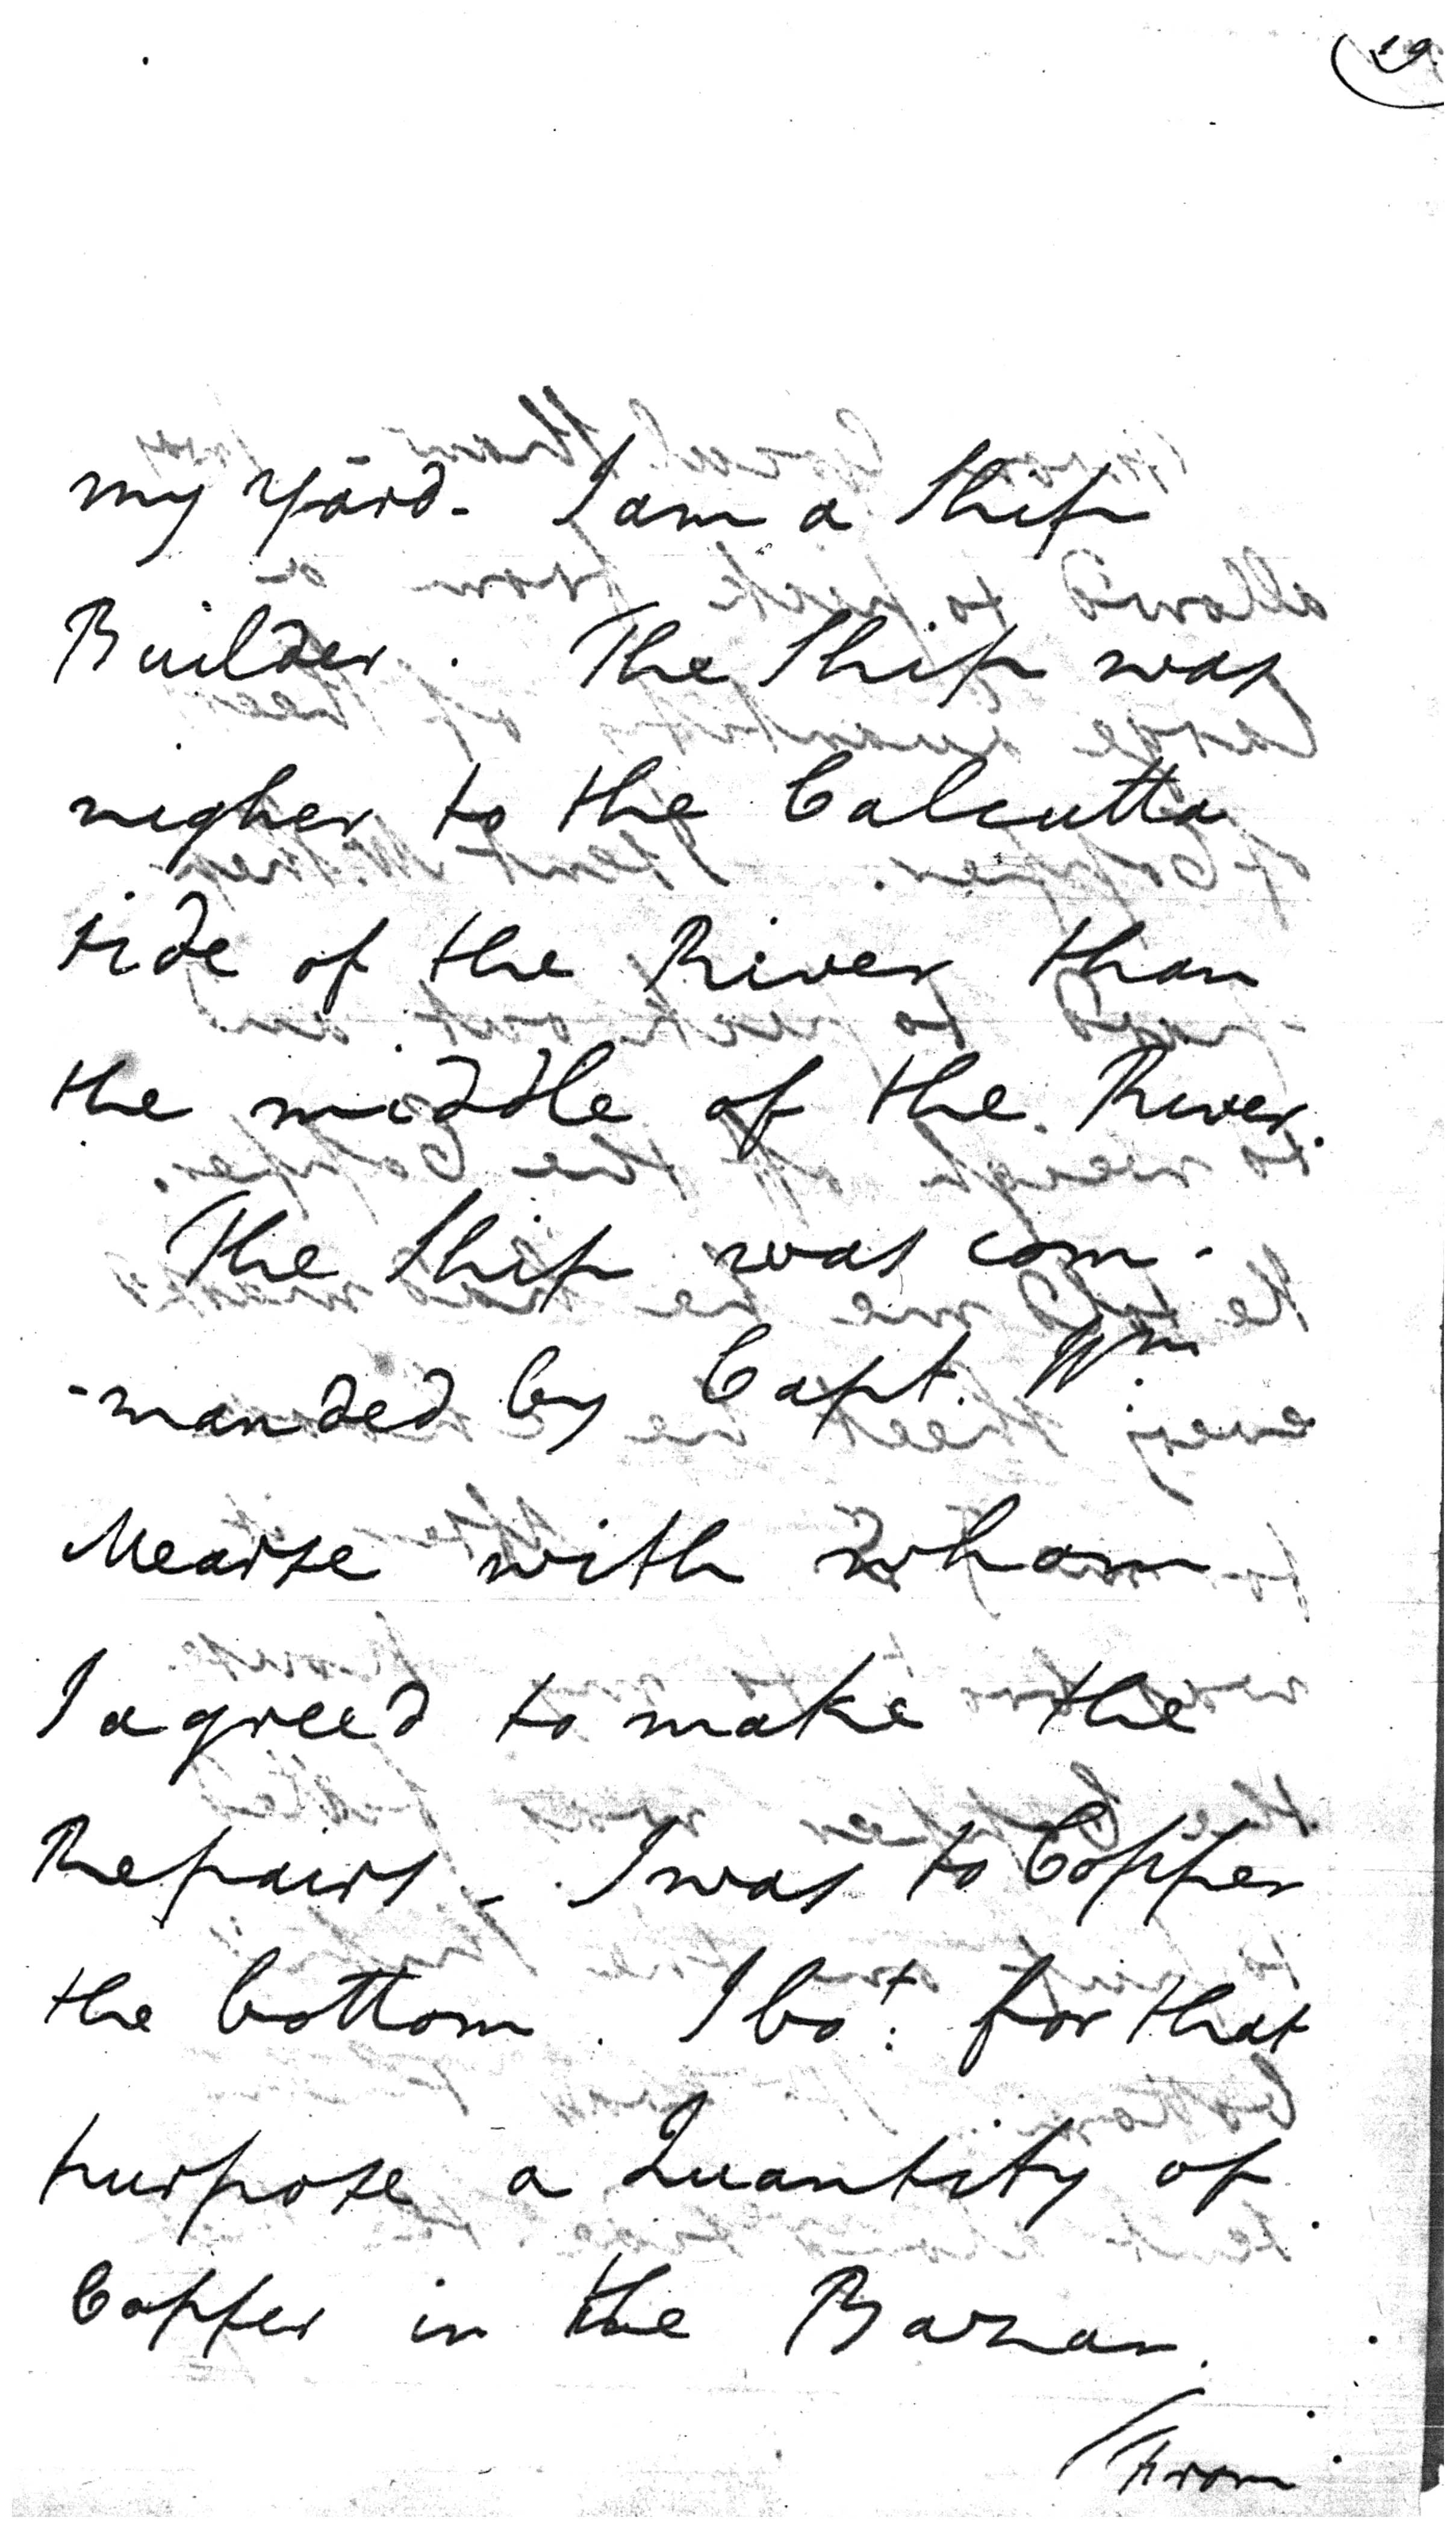 19.
my Yard - I am a Ship
Builder. The Ship was
nigher to the Calcutta
side of the River than
the middle of the River.
The Ship was com-
-manded by Capt. Wm.
Mearse with whom
I agreed to make the
Repairs - I was to Copper
the bottom. I bot. for that
purpose a Quantity of
Copper in the Bazar.
From